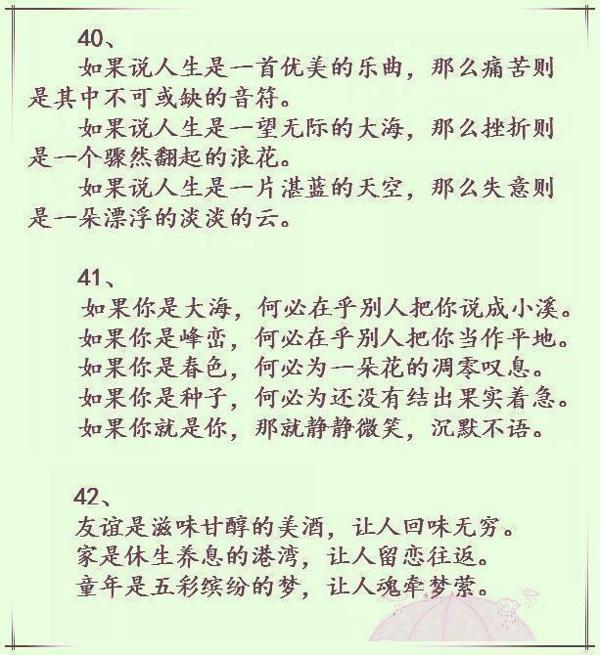 40、
如果说人生是一首优美的乐曲，那么痛苦则
是其中不可或缺的音符。
如果说人生是一望无际的大海，那么挫折则
是一个骤然翻起的浪花。
如果说人生是一片湛蓝的天空，那么失意则
是一朵漂浮的淡淡的云。
41、
如果你是大海，何必在乎别人把你说成小溪。
如果你是峰峦，何必在乎别人把你当作平地。
如果你是春色，何必为一朵花的凋零叹息。
如果你是种子，何必为还没有结出果实着急。
如果你就是你，那就静静微笑，沉默不语。
42、
友谊是滋味甘醇的美酒，让人回味无穷。
家是休生养息的港湾，让人留恋往返。
童年是五彩缤纷的梦，让人魂牵梦萦。